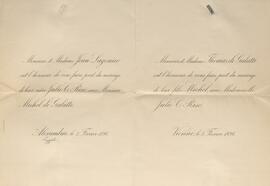 Monsieur & Madame Jean Lagonico
ont l'honneur de vous faire part du mariage
de leur nièce Julie C. avec Monsieur
Michel de Gulotta.
Alexandrie, le 5 Février 189
Egypte
Monsieur & Madame Thomas de Gulotta
ont l'honneur de vous faire part du mariage
de leur fils Michel, avec Mademoiselle
Julie C.
Vienne, le 5 Février 189